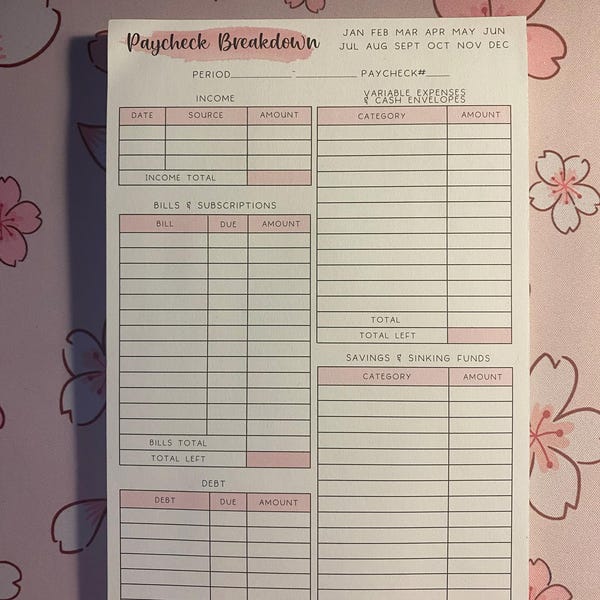 Paycheck Breakdown
JAN FEB MAR APR MAY JUN
JUL AUG SEPT OCT NOV DEC
PERIOD__________-__________ PAYCHECK#____
INCOME
DATE SOURCE AMOUNT
INCOME TOTAL
BILLS & SUBSCRIPTIONS
BILL DUE AMOUNT
BILLS TOTAL
TOTAL LEFT
DEBT
DEBT DUE AMOUNT
VARIABLE EXPENSES
& CASH ENVELOPES
CATEGORY AMOUNT
TOTAL
TOTAL LEFT
SAVINGS & SINKING FUNDS
CATEGORY AMOUNT